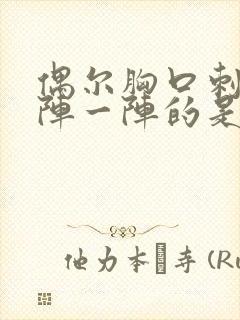 偶尔胸口刺
陣一陣的是
他力本�寺 (Ru